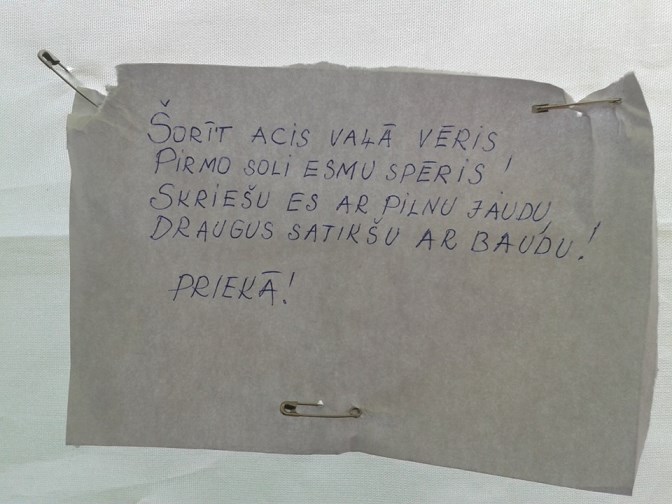 ŠORĪT ACIS VAĻĀ VĒRIS
PIRMO SOLI ESMU SPĒRIS!
SKRIEŠU ES AR PILNU JAUDU,
DRAUGUS SATIKŠU AR BAUDU!
PRIEKĀ!